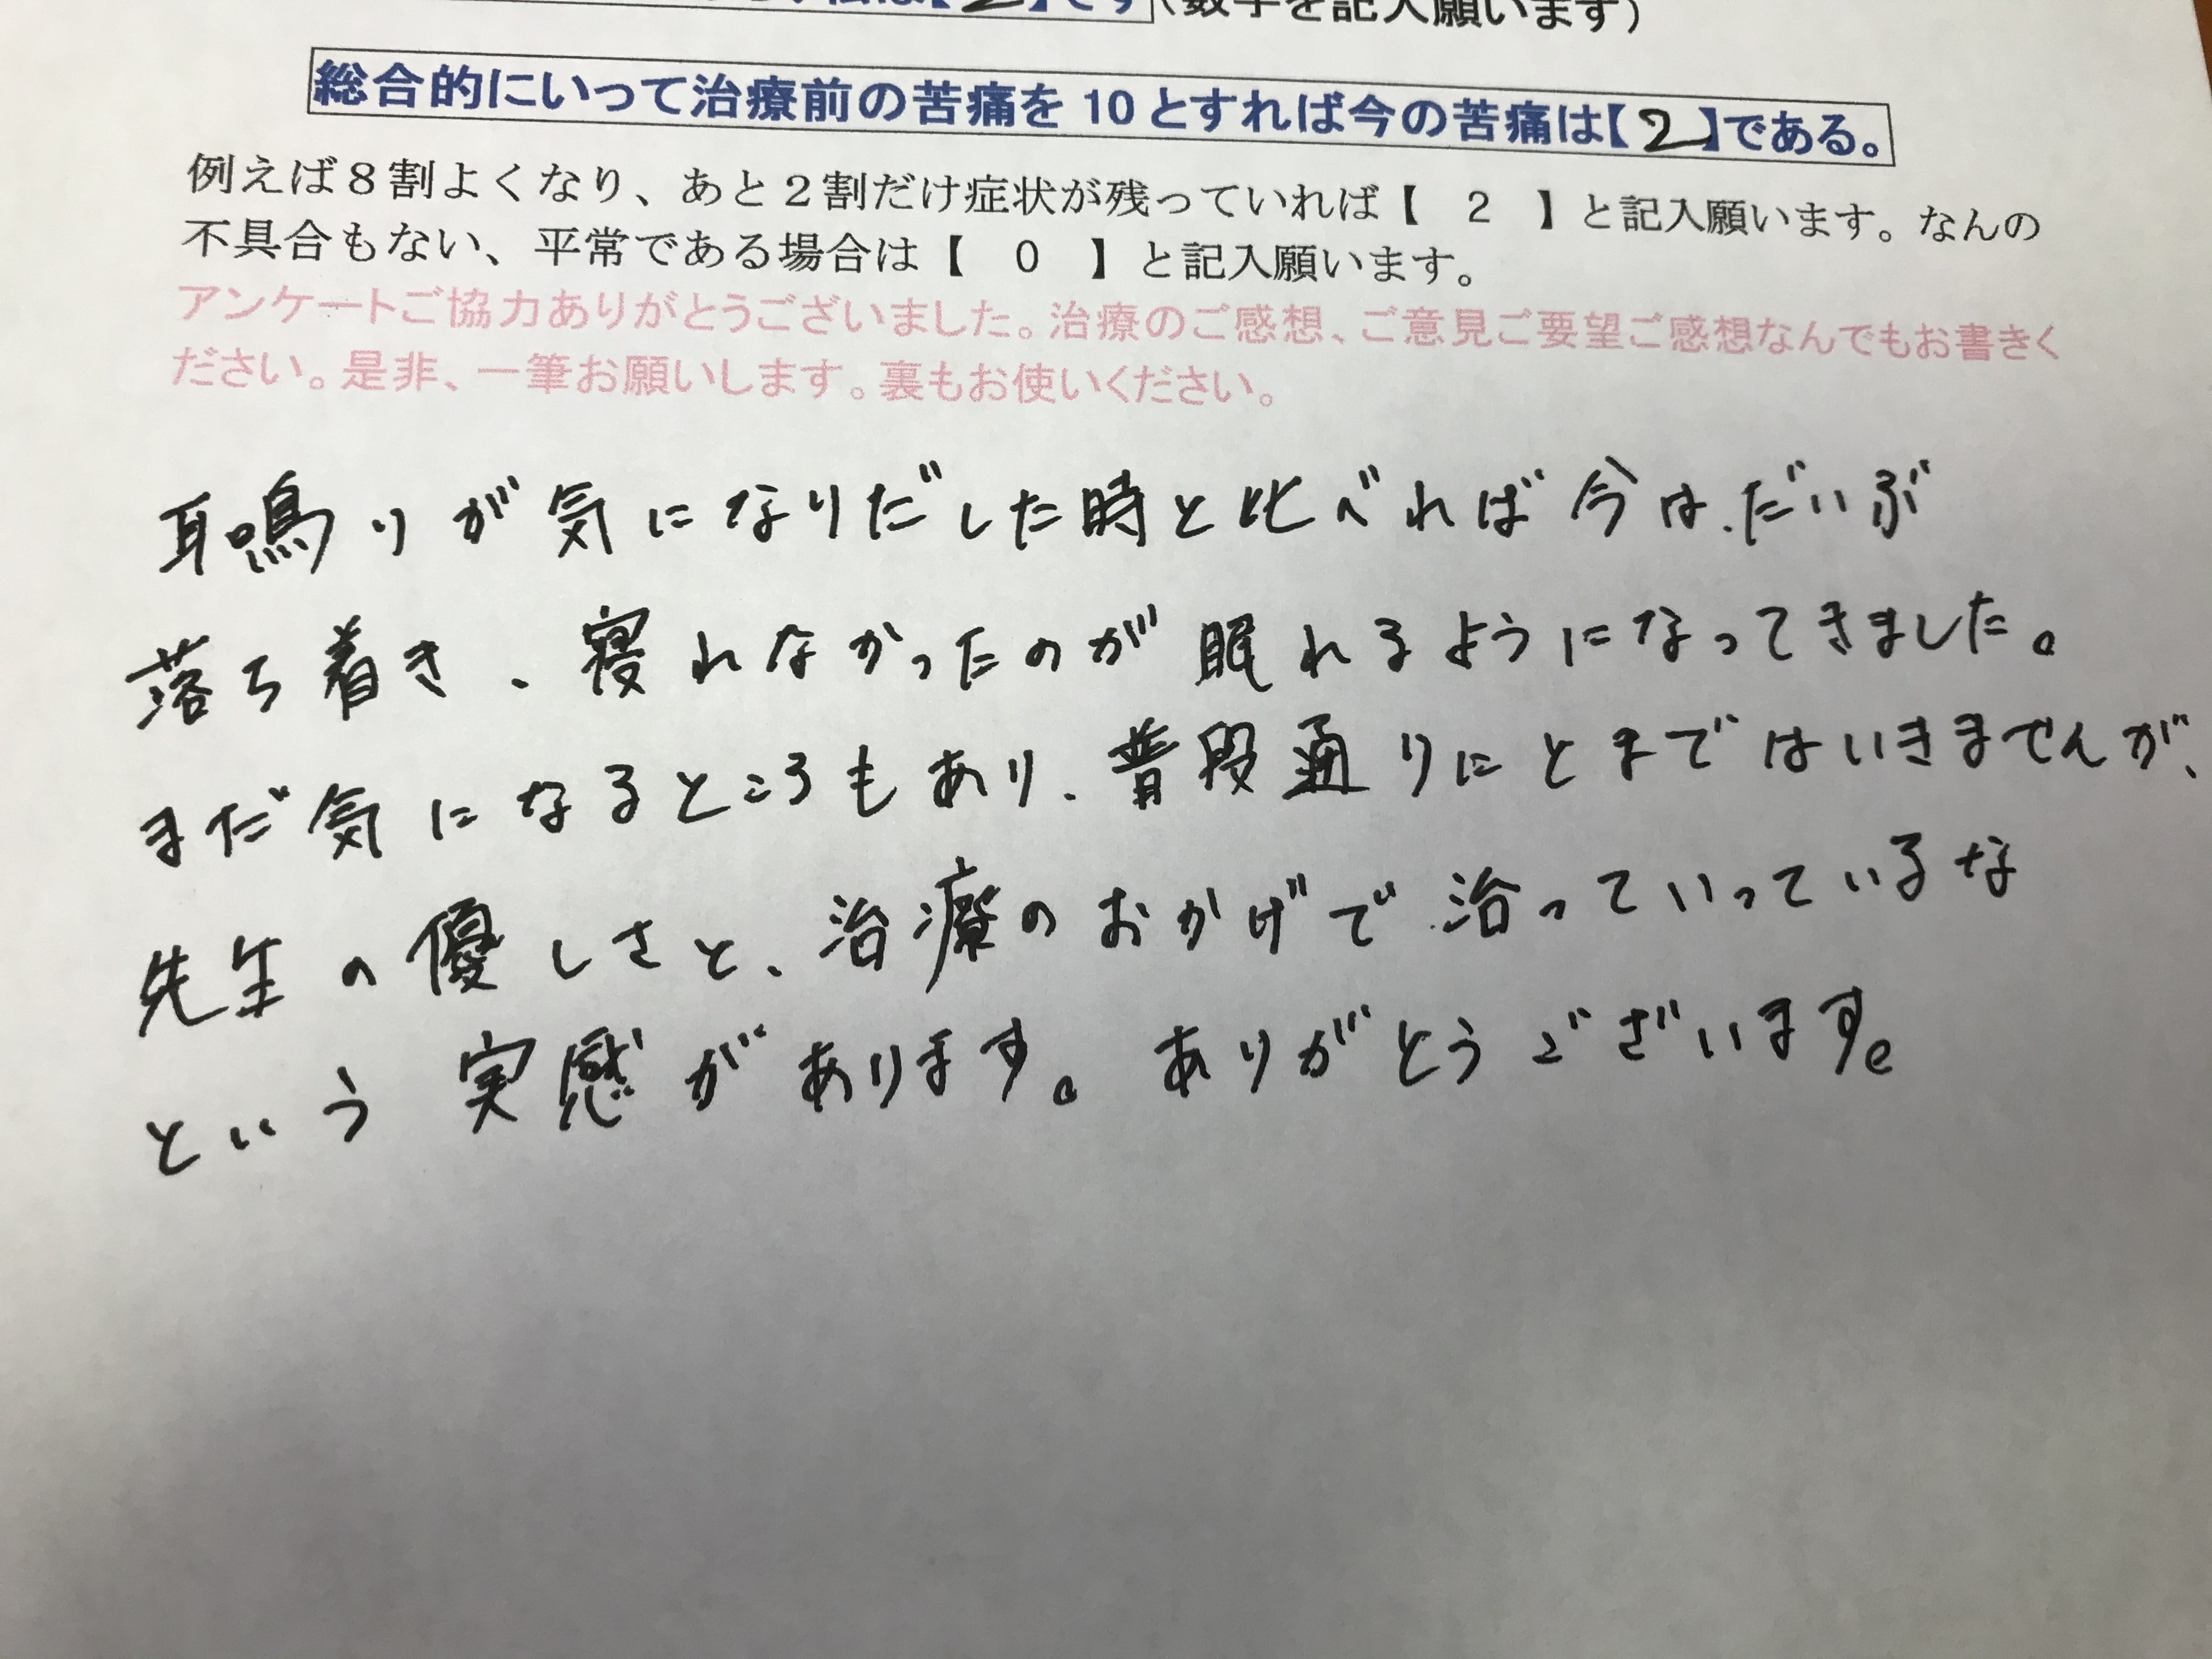 は【2】です(数字を記入願います)
総合的にいって治療前の苦痛を10とすれば今の苦痛は【2】である。
例えば8割よくなり、あと2割だけ症状が残っていれば【 2 】と記入願います。なんの
不具合もない、平常である場合は【 0 】と記入願います。
アンケートご協力ありがとうございました。治療のご感想、ご意見ご要望ご感想なんでもお書きく
ださい。是非、一筆お願いします。裏もお使いください。
耳鳴りが気になりだした時と比べれば今は、だいぶ
落ち着き、寝れなかったのが眠れるようになってきました。
まだ気になるところもあり、普段通りにとまではいきませんが、
先生の優しさと、治療のおかげで治っていっているな
という実感があります。ありがとうございます。